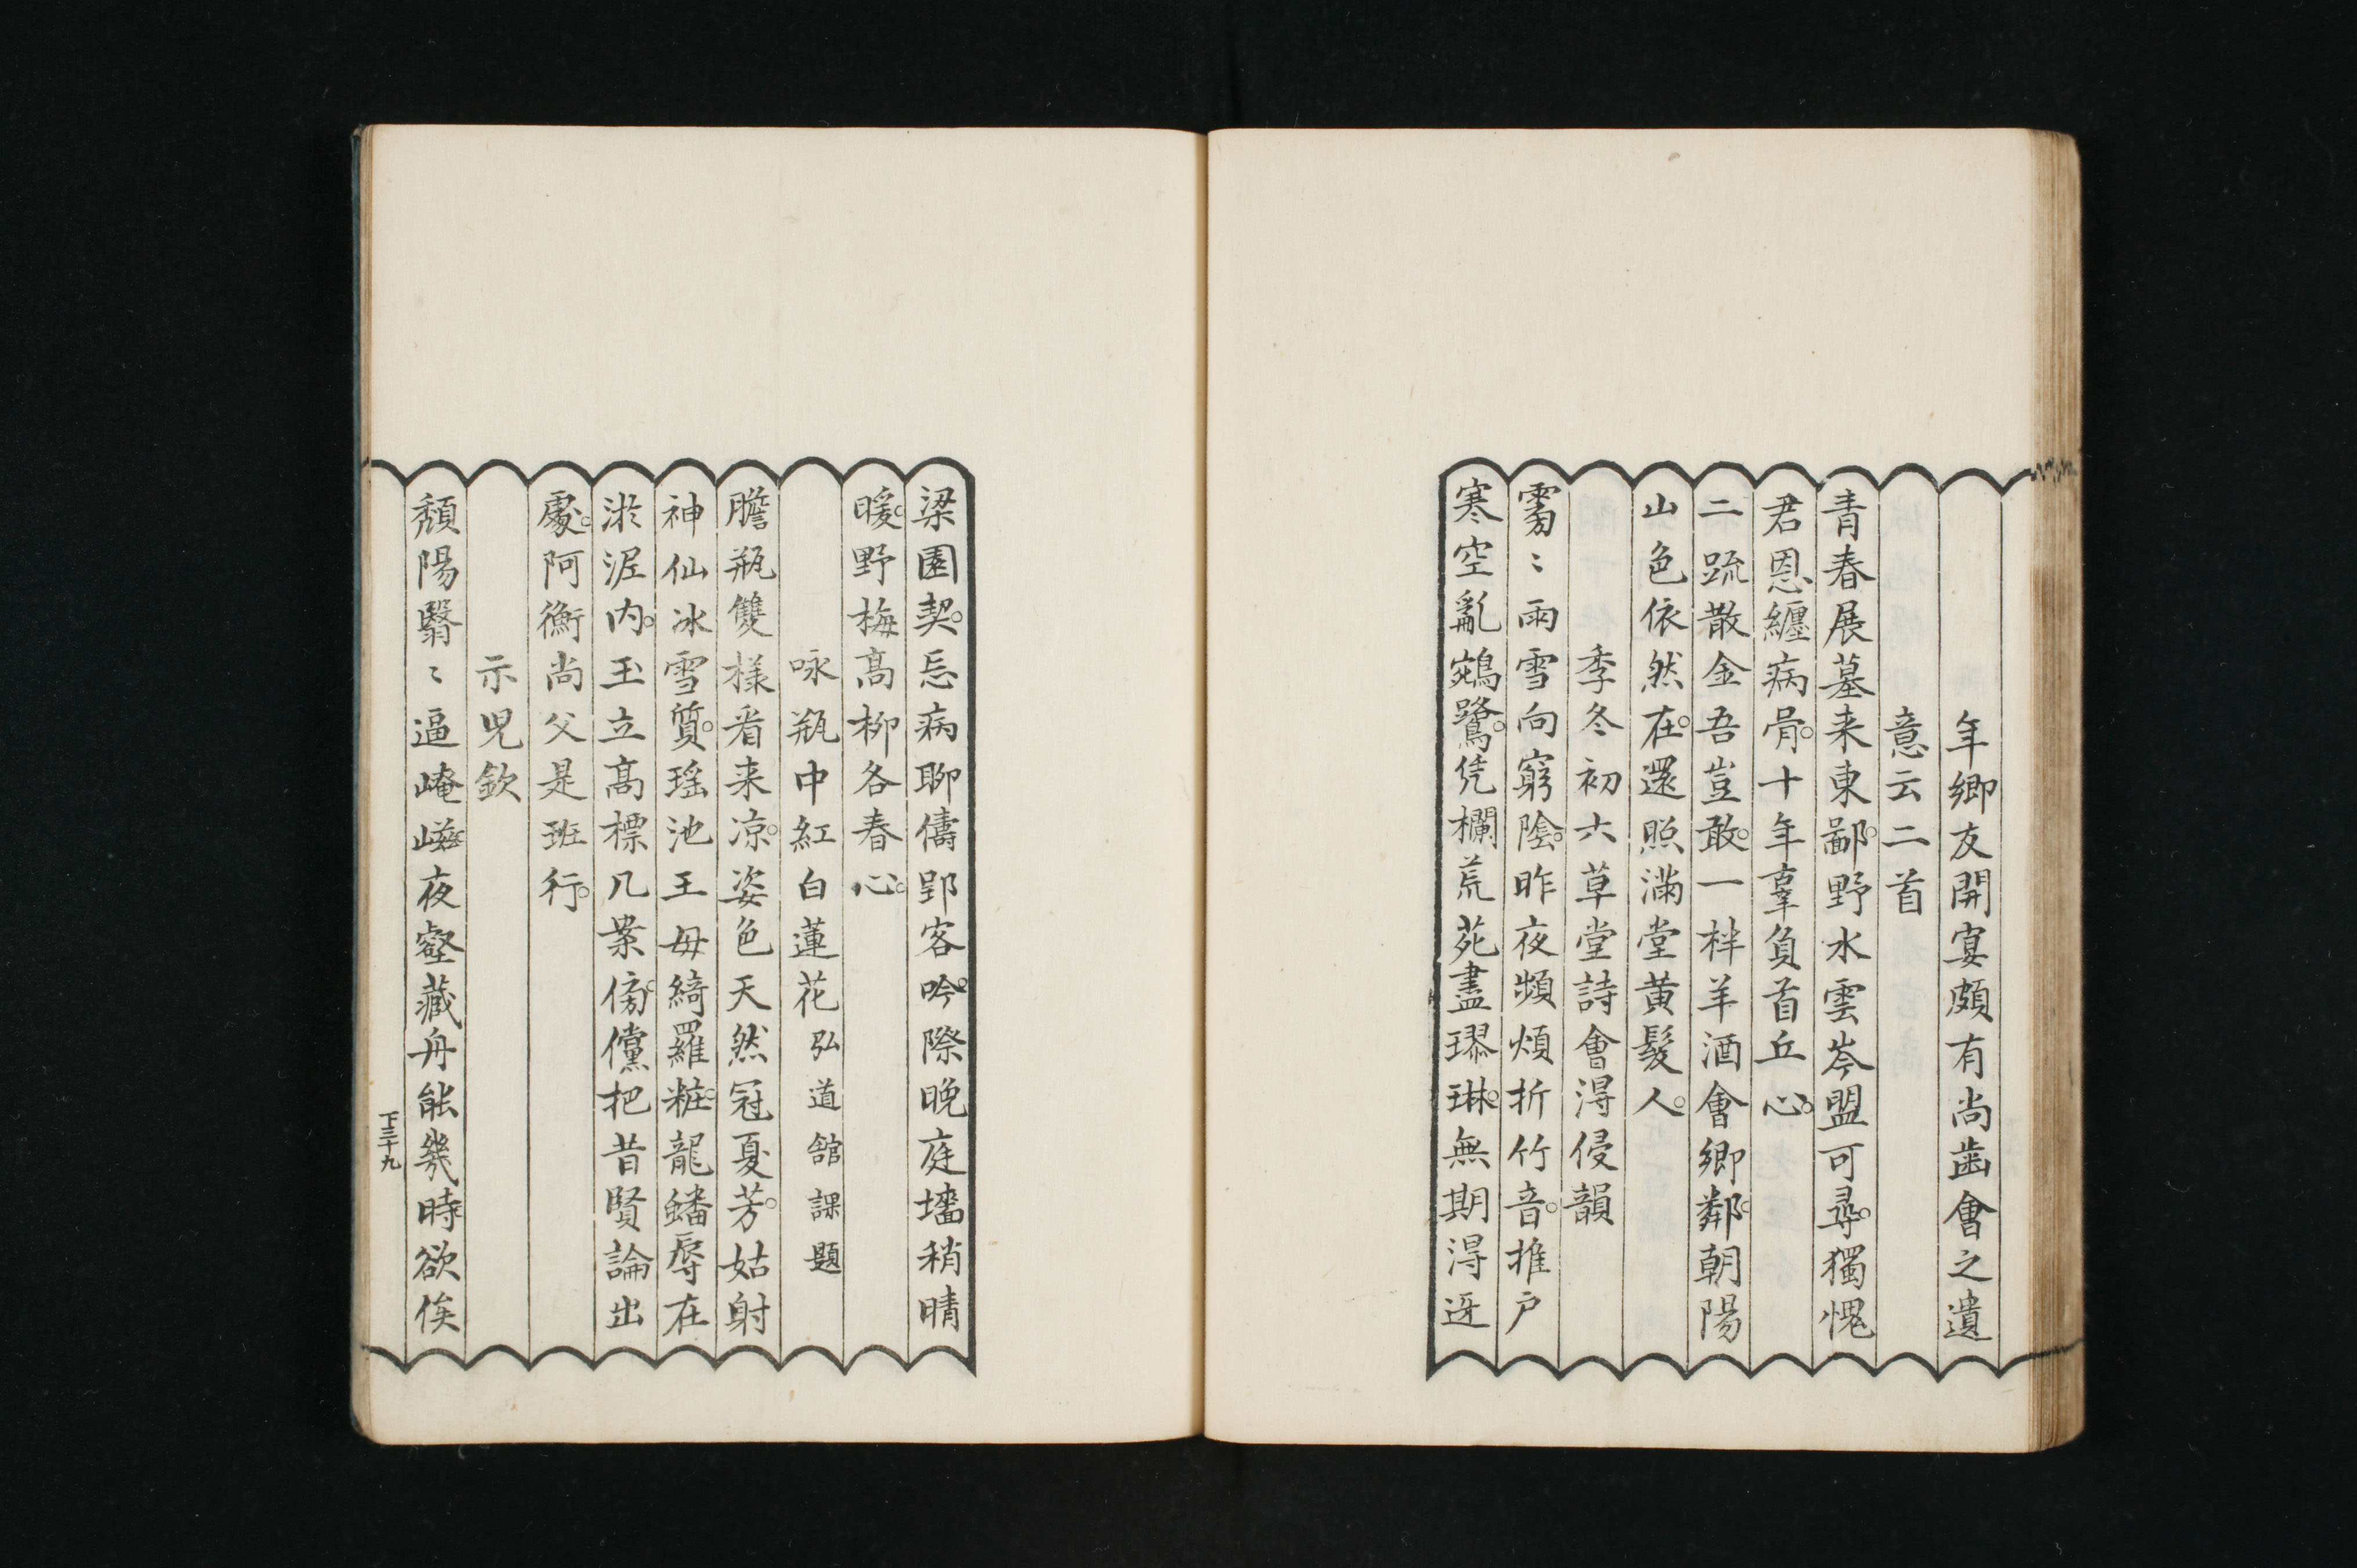 年鄉友開宴頗有尚齒會之遺
意云二首
青春展墓来東鄙野水雲岑盟可尋獨愧
君恩纏病骨十年辜負首丘心
二疏散金吾豈敢一柈羊酒會鄉鄰朝陽
山色依然在還照滿堂黄髮人
季冬初六草堂詩會得侵韻
雱〻雨雪向窮陰昨夜頻煩折竹音推户
寒空亂鵷鷺凭欄荒苑盡璆琳無期得迓
梁園契忘病聊儔郢客吟際晚庭墻稍晴
暖野梅髙柳各春心
咏瓶中紅白蓮花弘道館課題
膽瓶雙様看来凉姿色天然冠夏芳姑射
神仙冰雪質瑶池王母綺羅粧龍蟠辱在
淤泥内玉立髙標几案傍儻把昔賢論出
處阿衡尚父是班行
示兒欽
頽陽翳〻逼崦嵫夜壑藏舟能幾時欲俟
下三十九